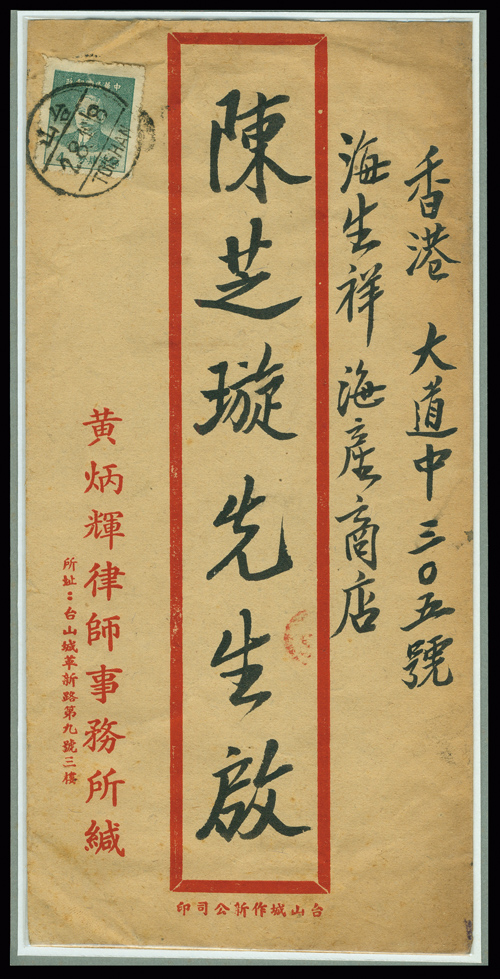 香港 大道中 三〇五號
海生祥海產商店
陳芝璇先生啟
黃炳輝律師事務所緘
所址：台山城革新路第九號三樓
台山城作新公司印
台山
TOISHAN